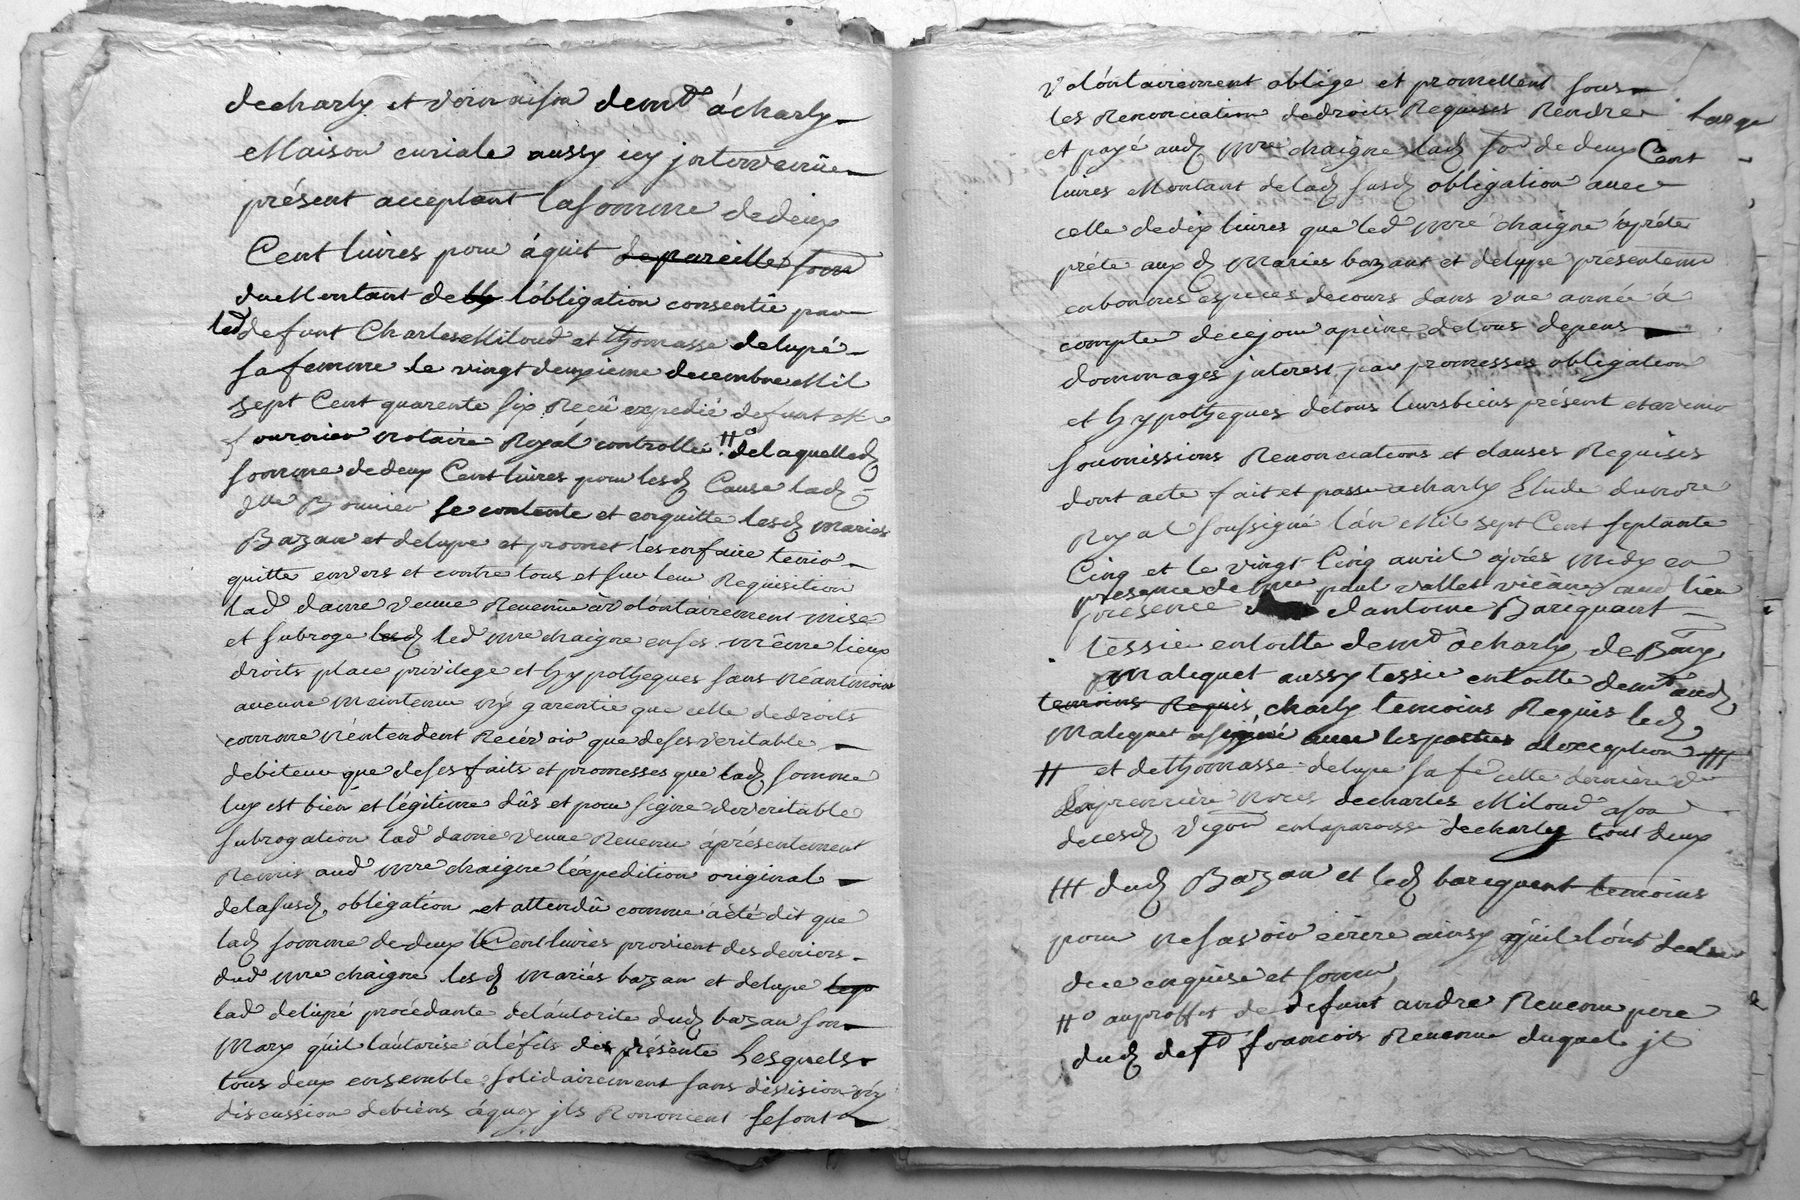 decharly et voirnaison demt acharly
Maison curiale aussy icy jntervenüe
présent acceptant lasomme dedeux
Cent livres pour áquit de pareille som
du Montant de l'obligation consentie par
led defunt Charles Miloud et thomasse delupé
sa femme le vingt deuxieme decembre Mil
sept Cent quarente six Reçû expedié defunt
fournier notaire Royal controllée #° delaquelled
somme dedeux Cent livres pour lesd Cause lad
se contente et enquitte lesd mariés
Bazan et delupe et promet les enfaire tenir
quitte envers et contre tous et sur leur Requisition
lad dame veuve Revenu a volóntairement mise
et subroge lesd led mre chaigne enses même lieux
droits place privilege et hypotheques sans Néantmoins
aucune Maintenu ny garentie que celle dedroits
comme n'éntendent Recévoir que deses veritable
debiteur que deses faits et promesses que lad somme
luy est bien et légitime dûs et pour signe deveritable
subrogation lad dame veuve Revenu á présentement
Remis aud mre chaigne l'éxpedition original
delasusd obligation et attendû comme á èté dit que
lad somme de deux Cent livres provient des deniers
dud mre chaigne lesd mariés bazan et delupe
lad delupé procédante del'áutorite dud bazan son
Mary qúil láutorise á léfets des présente Lesquells
tous deux ensemble solidairement sans división ny
discussion debiens áquoy jls Renoncent sesont
volóntairement oblige et promettent sous
les Renonciation dedroits Requises Rendre
et payé aud mre chaigne lad so de deux Cent
livres Montant delad susd obligation avec
celle dedix livres que led mre chaigne
préte aux d Mariés bazant et delupe présenteme
enbonnes especes decours dans une année á
compte decejour apeine detous depens
dommages jnterest par promesses obligation
et hypotheques detous leursbiens présent etavenir
soumissions Renonciations et clauses Requises
dont acte fait et passé acharly Etude dunore
Royal soussigné l'an Mil sept Cent septante
Cinq et le vingt Cinq avril áprés midy en
presence de paul vallet vicaire aud lieu
présence dantoine Barequant
tessie entoille demt acharly de
Maliquet aussy tessie entoille demt aud
temoins Requis charly temoins Requis led
Maliquet asigné avec lesparties aléxception #|
# et dethomasse delupe sa fe cette derniere
premiere noces decharles Miloud
decesd vigon enlaparoisse decharly tous deux
#| dud Bazan et led barequent temoins
pour nesavoir écrire ainsy qúil lónt declar
dece enquise et somm
#° auproffit de defunt andre Revenu pere
dud deft francois Revenu duquel jl